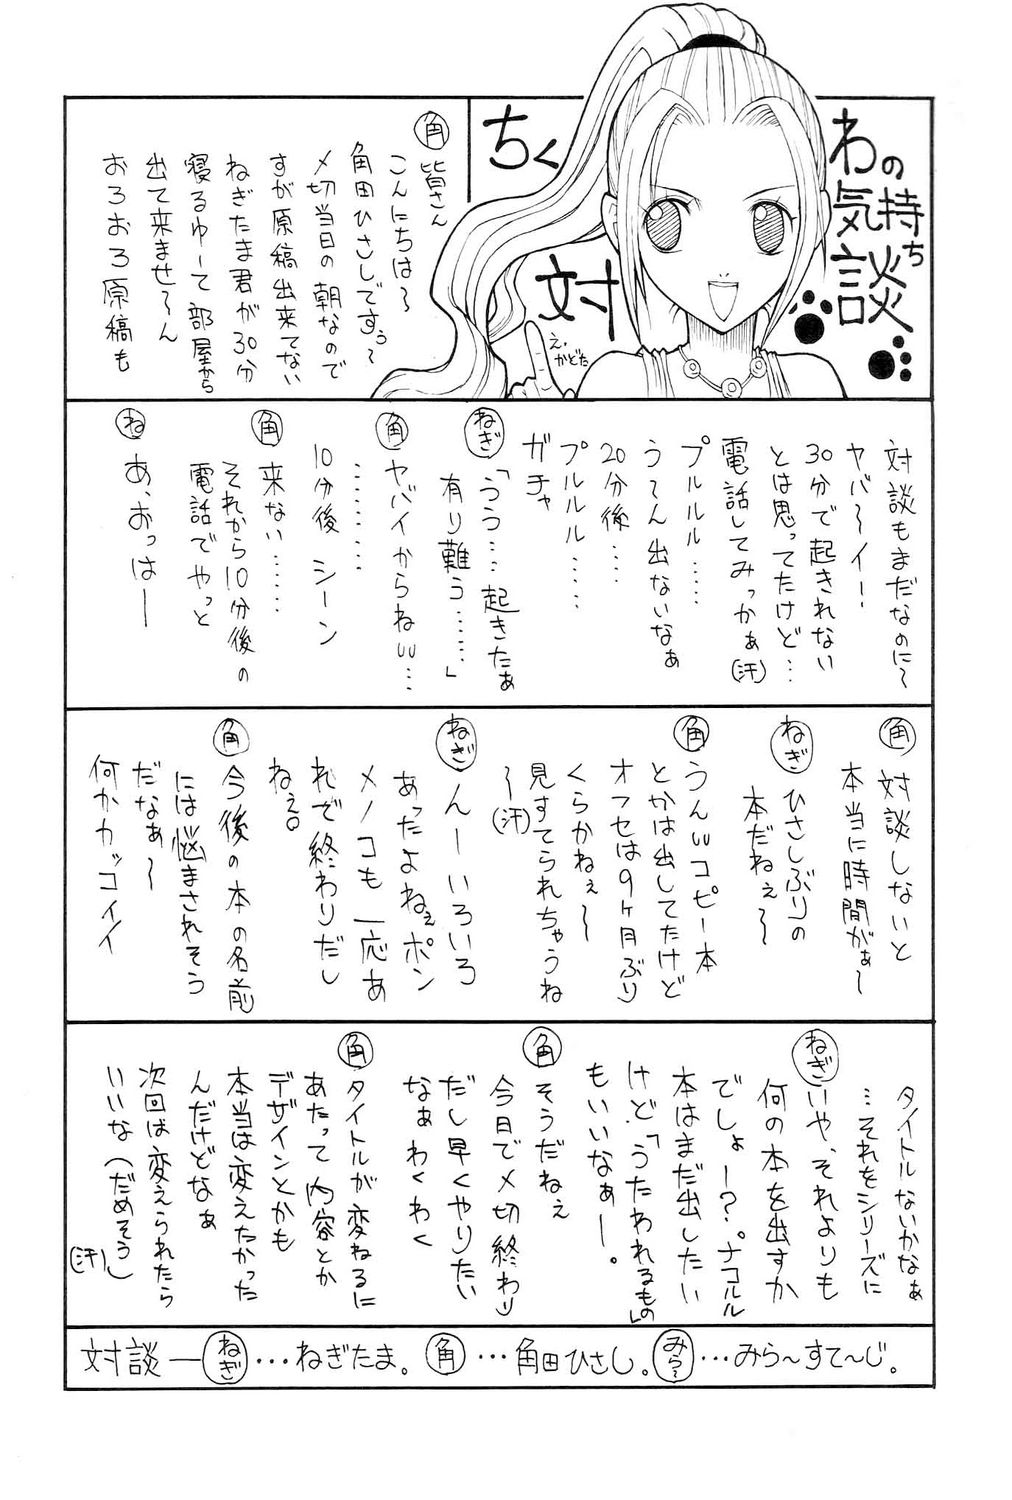 ちくわの気持ち
対談
え、
かどた
角
皆さん
こんにちは～
角田ひさしですぅ～
〆切当日の朝なので
すが原稿出来てない
ねぎたま君が30分
寝るゆーて部屋から
出て来ませ～ん
おろおろ原稿も
対談もまだなのに～
ヤバ～イ！
30分で起きれない
とは思ってたけど…
電話してみっかぁ(汗)
プルルル……
う～ん出ないなぁ
20分後…
プルルル……
ガチャ
ねぎ
「うう…起きたぁ
有り難う……」
角
ヤバイからねw…
………
10分後 シーン
角
来ない……
それから10分後の
電話でやっと
ね
あ、おっはー
角
対談しないと
本当に時間がぁ～
ねぎ
ひさしぶりの
本だねぇ～
角
うんwコピー本
とかは出してたけど
オフセは9ヶ月ぶり
くらかねぇ～
見すてられちゃうね
～(汗)
ねぎ
んーいろいろ
あったよねぇポン
メノコも一応あ
れで終わりだし
ねぇ。
角
今後の本の名前
には悩まされそう
だなぁ～
何かカッコイイ
タイトルないかなぁ
…それをシリーズに
ねぎ
いや、それよりも
何の本を出すか
でしょー？ナコルル
本はまだ出したい
けど「うたわれるもの」
もいいなぁー。
角
そうだねぇ
今日で〆切終わり
だし早くやりたい
なぁ わくわく
角
タイトルが変わるに
あたって内容とか
デザインとかも
本当は変えたかった
んだけどなぁ
次回は変えられたら
いいな(だめそう)
(汗)
対談―ねぎ…ねぎたま。角…角田ひさし。みら～…みら～すて～じ。